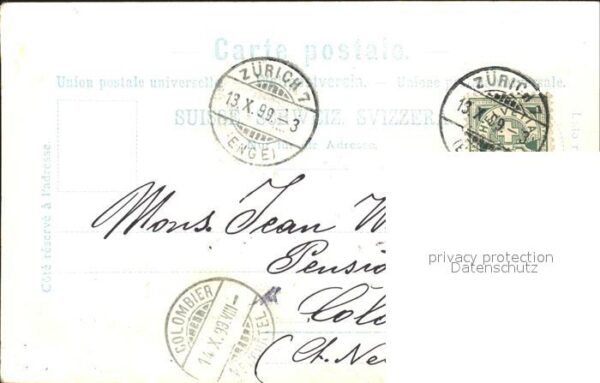 Carte postale.
Union postale universelle. Weltpostverein. Unione postale universale.
SUISSE. SCHWEIZ. SVIZZERA.
Nur für die Adresse.
Côté réservé à l'adresse.
ZÜRICH 7
13.X.99.-3
(ENGE)
ZÜRICH 7
13.X.99.-3
Mons. Jean W
Pensio
Colo
(Ct. Ne
COLOMBIER
14.X.99.VIII-
privacy protection
Datenschutz